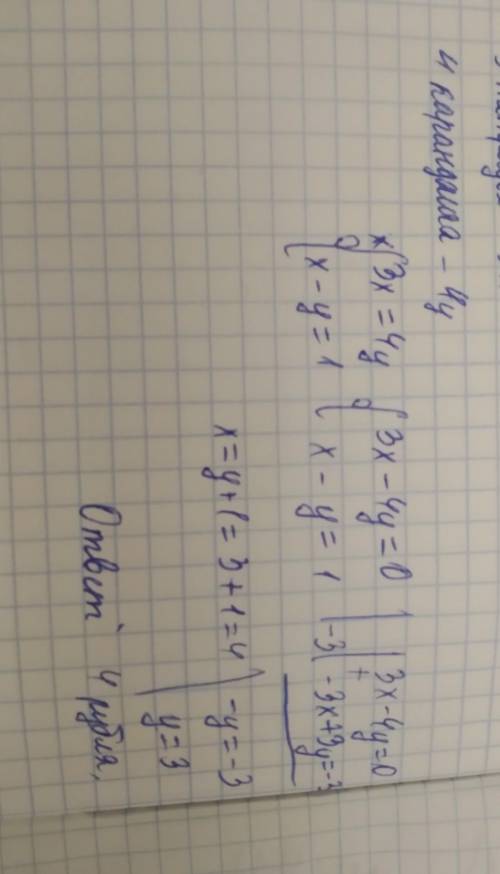 4 карандаша - 4y
{ 3x = 4y { 3x - 4y = 0 | 3x - 4y = 0
{ x - y = 1 { x - y = 1 | -3 | + -3x + 3y = -3
-y = -3
x = y + 1 = 3 + 1 = 4 y = 3
Ответ 4 рубля.